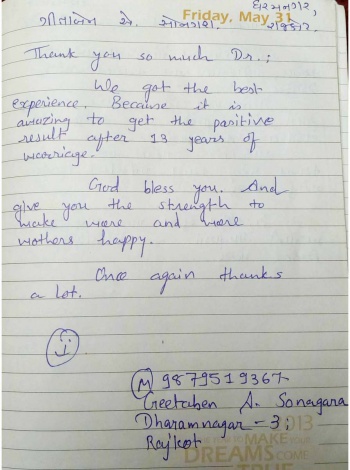 ધરમનગર,
ગીતાબેન એ. સોનગરા. Friday, May 31 રાજકોટ.
Thank you so much Dr.;
We got the best
experience. Because it is
amazing to get the positive
result after 13 years of
marriage.
God bless you. And
give you the strength to
make more and more
mothers happy.
Once again thanks
a lot.
(M) 9879519367
Geetaben A. Sonagara
Dharamnagar - 3;
Rajkot
2013
MAKE YOUR
DREAMS COME
TRUE